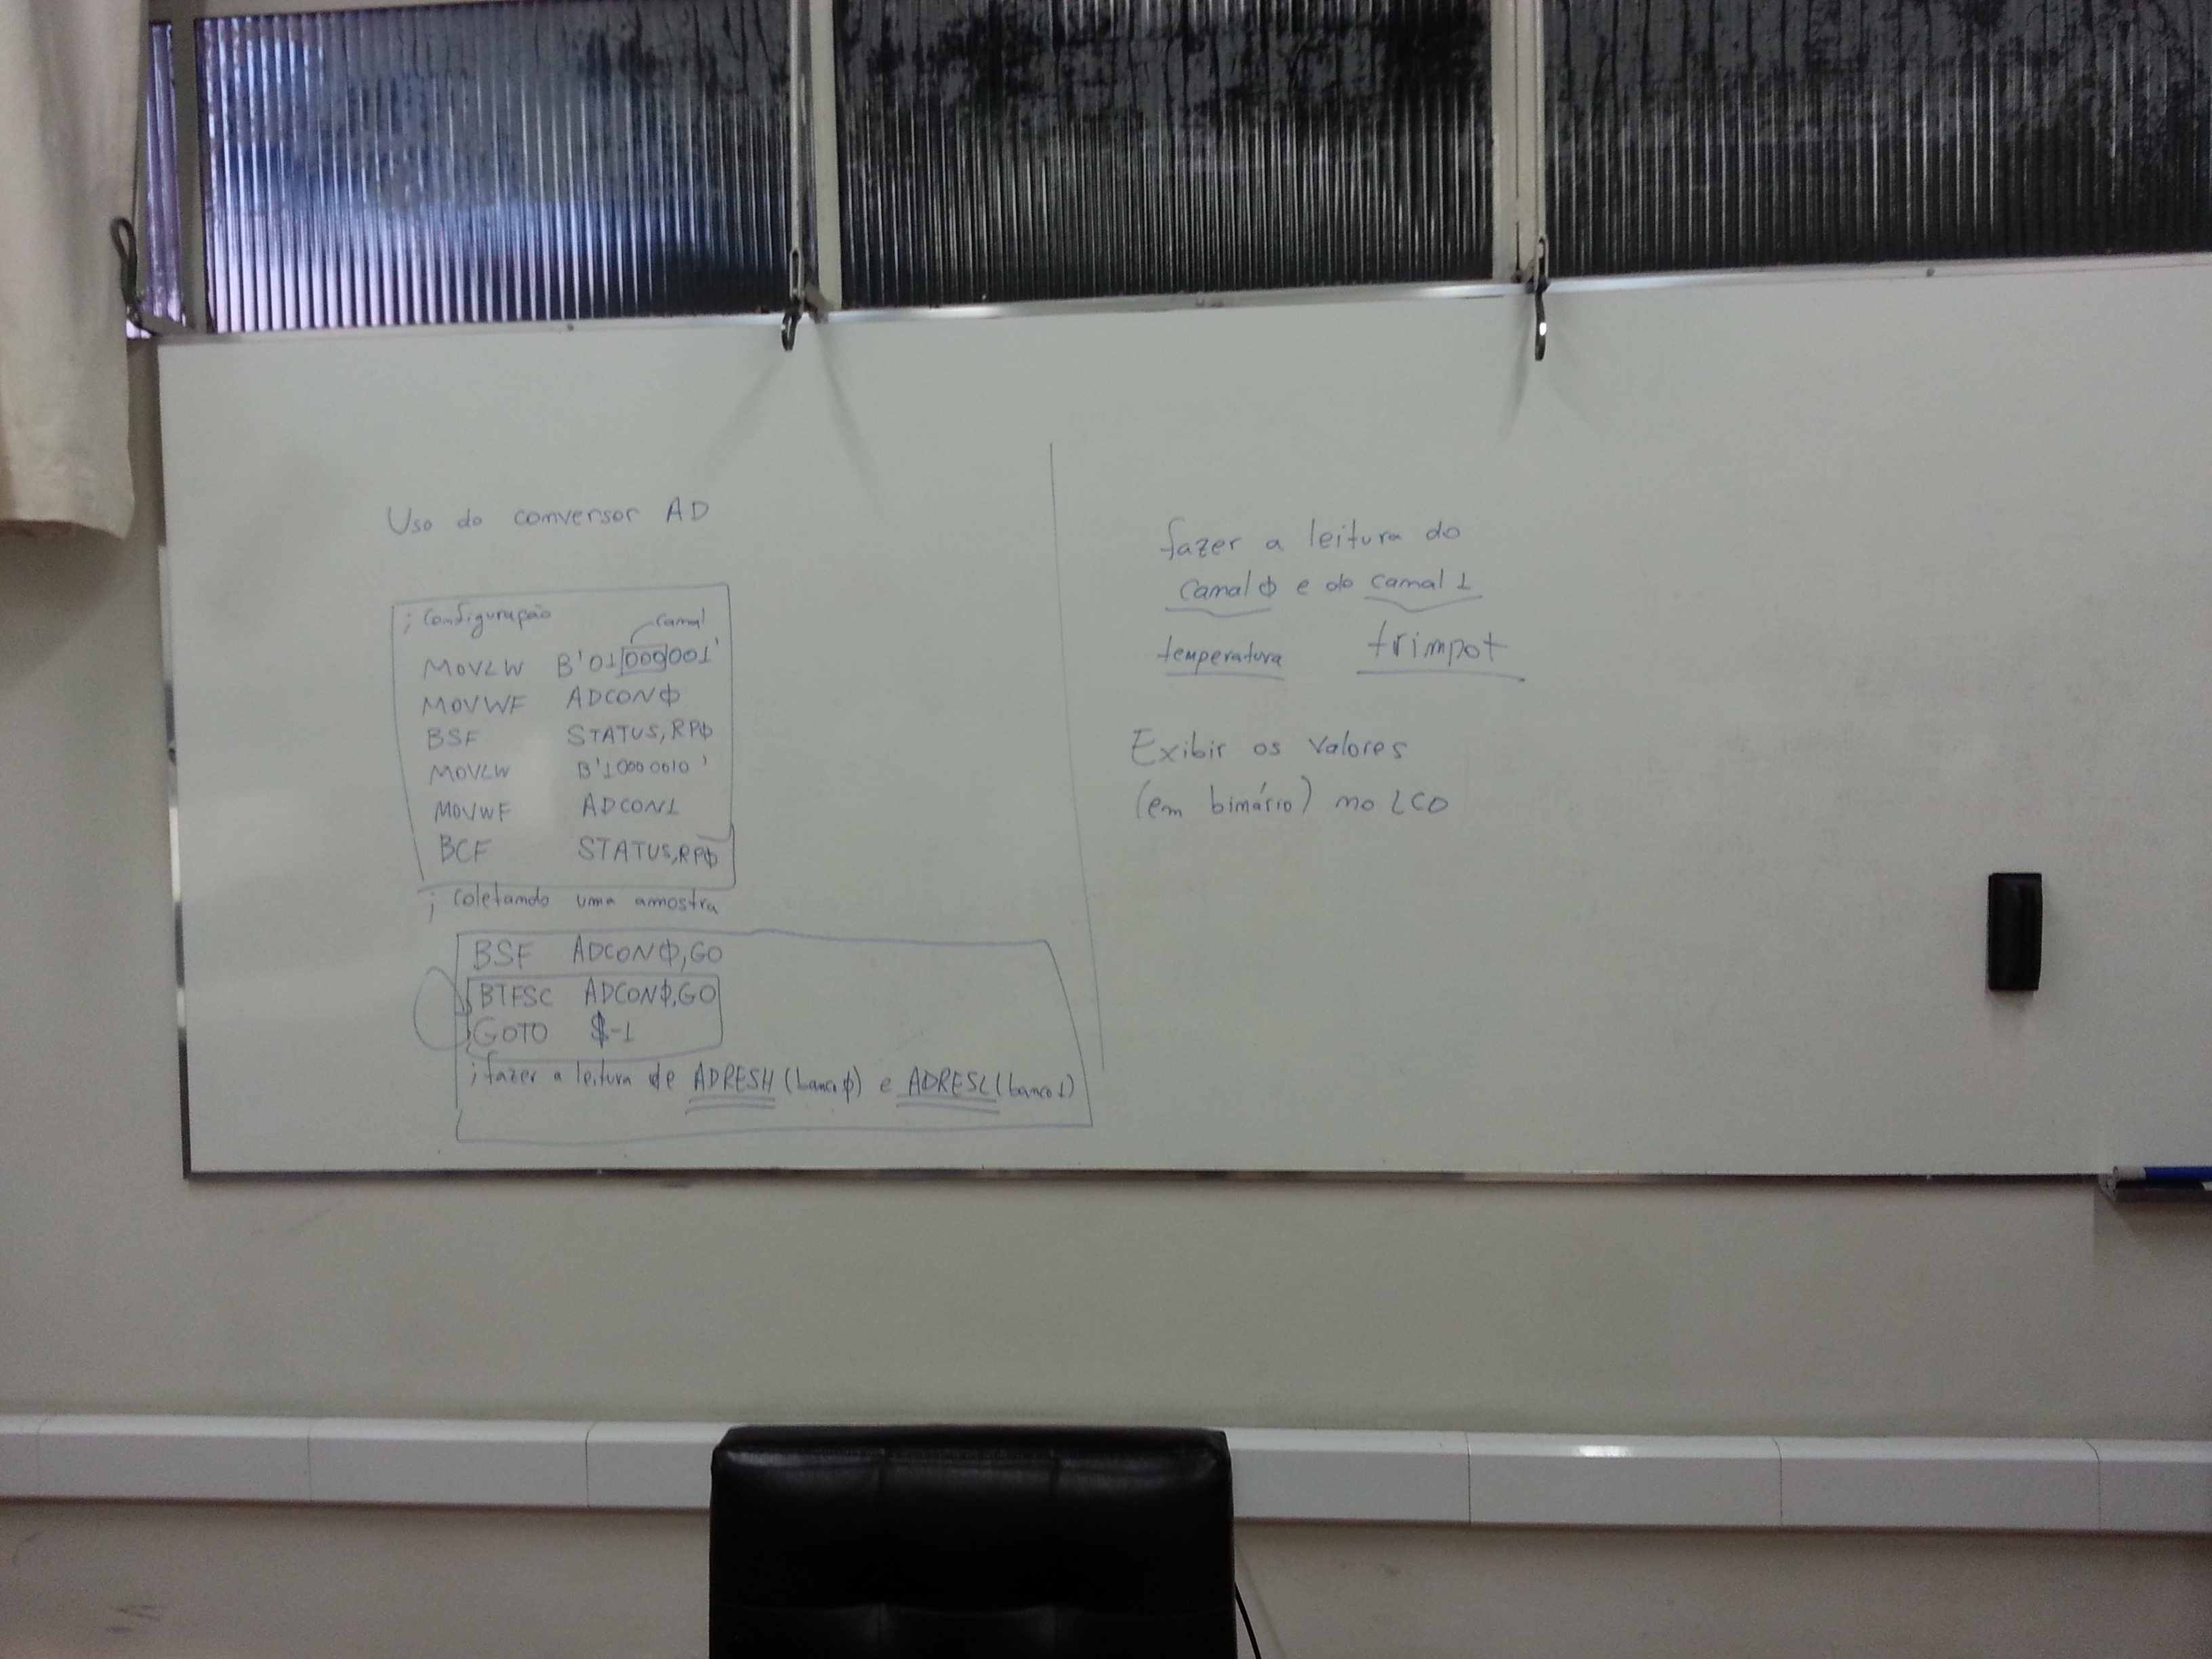 Uso do conversor AD
; Configuração
canal
MOVLW B'01000001'
MOVWF ADCON0
BSF STATUS,RP0
MOVLW B'10000010'
MOVWF ADCON1
BCF STATUS,RP0
; coletando uma amostra
BSF ADCON0,GO
BTFSC ADCON0,GO
GOTO $-1
; fazer a leitura de ADRESH (banco 0) e ADRESL (banco 1)
fazer a leitura do
canal 0 e do canal 1
temperatura trimpot
Exibir os valores
(em binário) no LCD